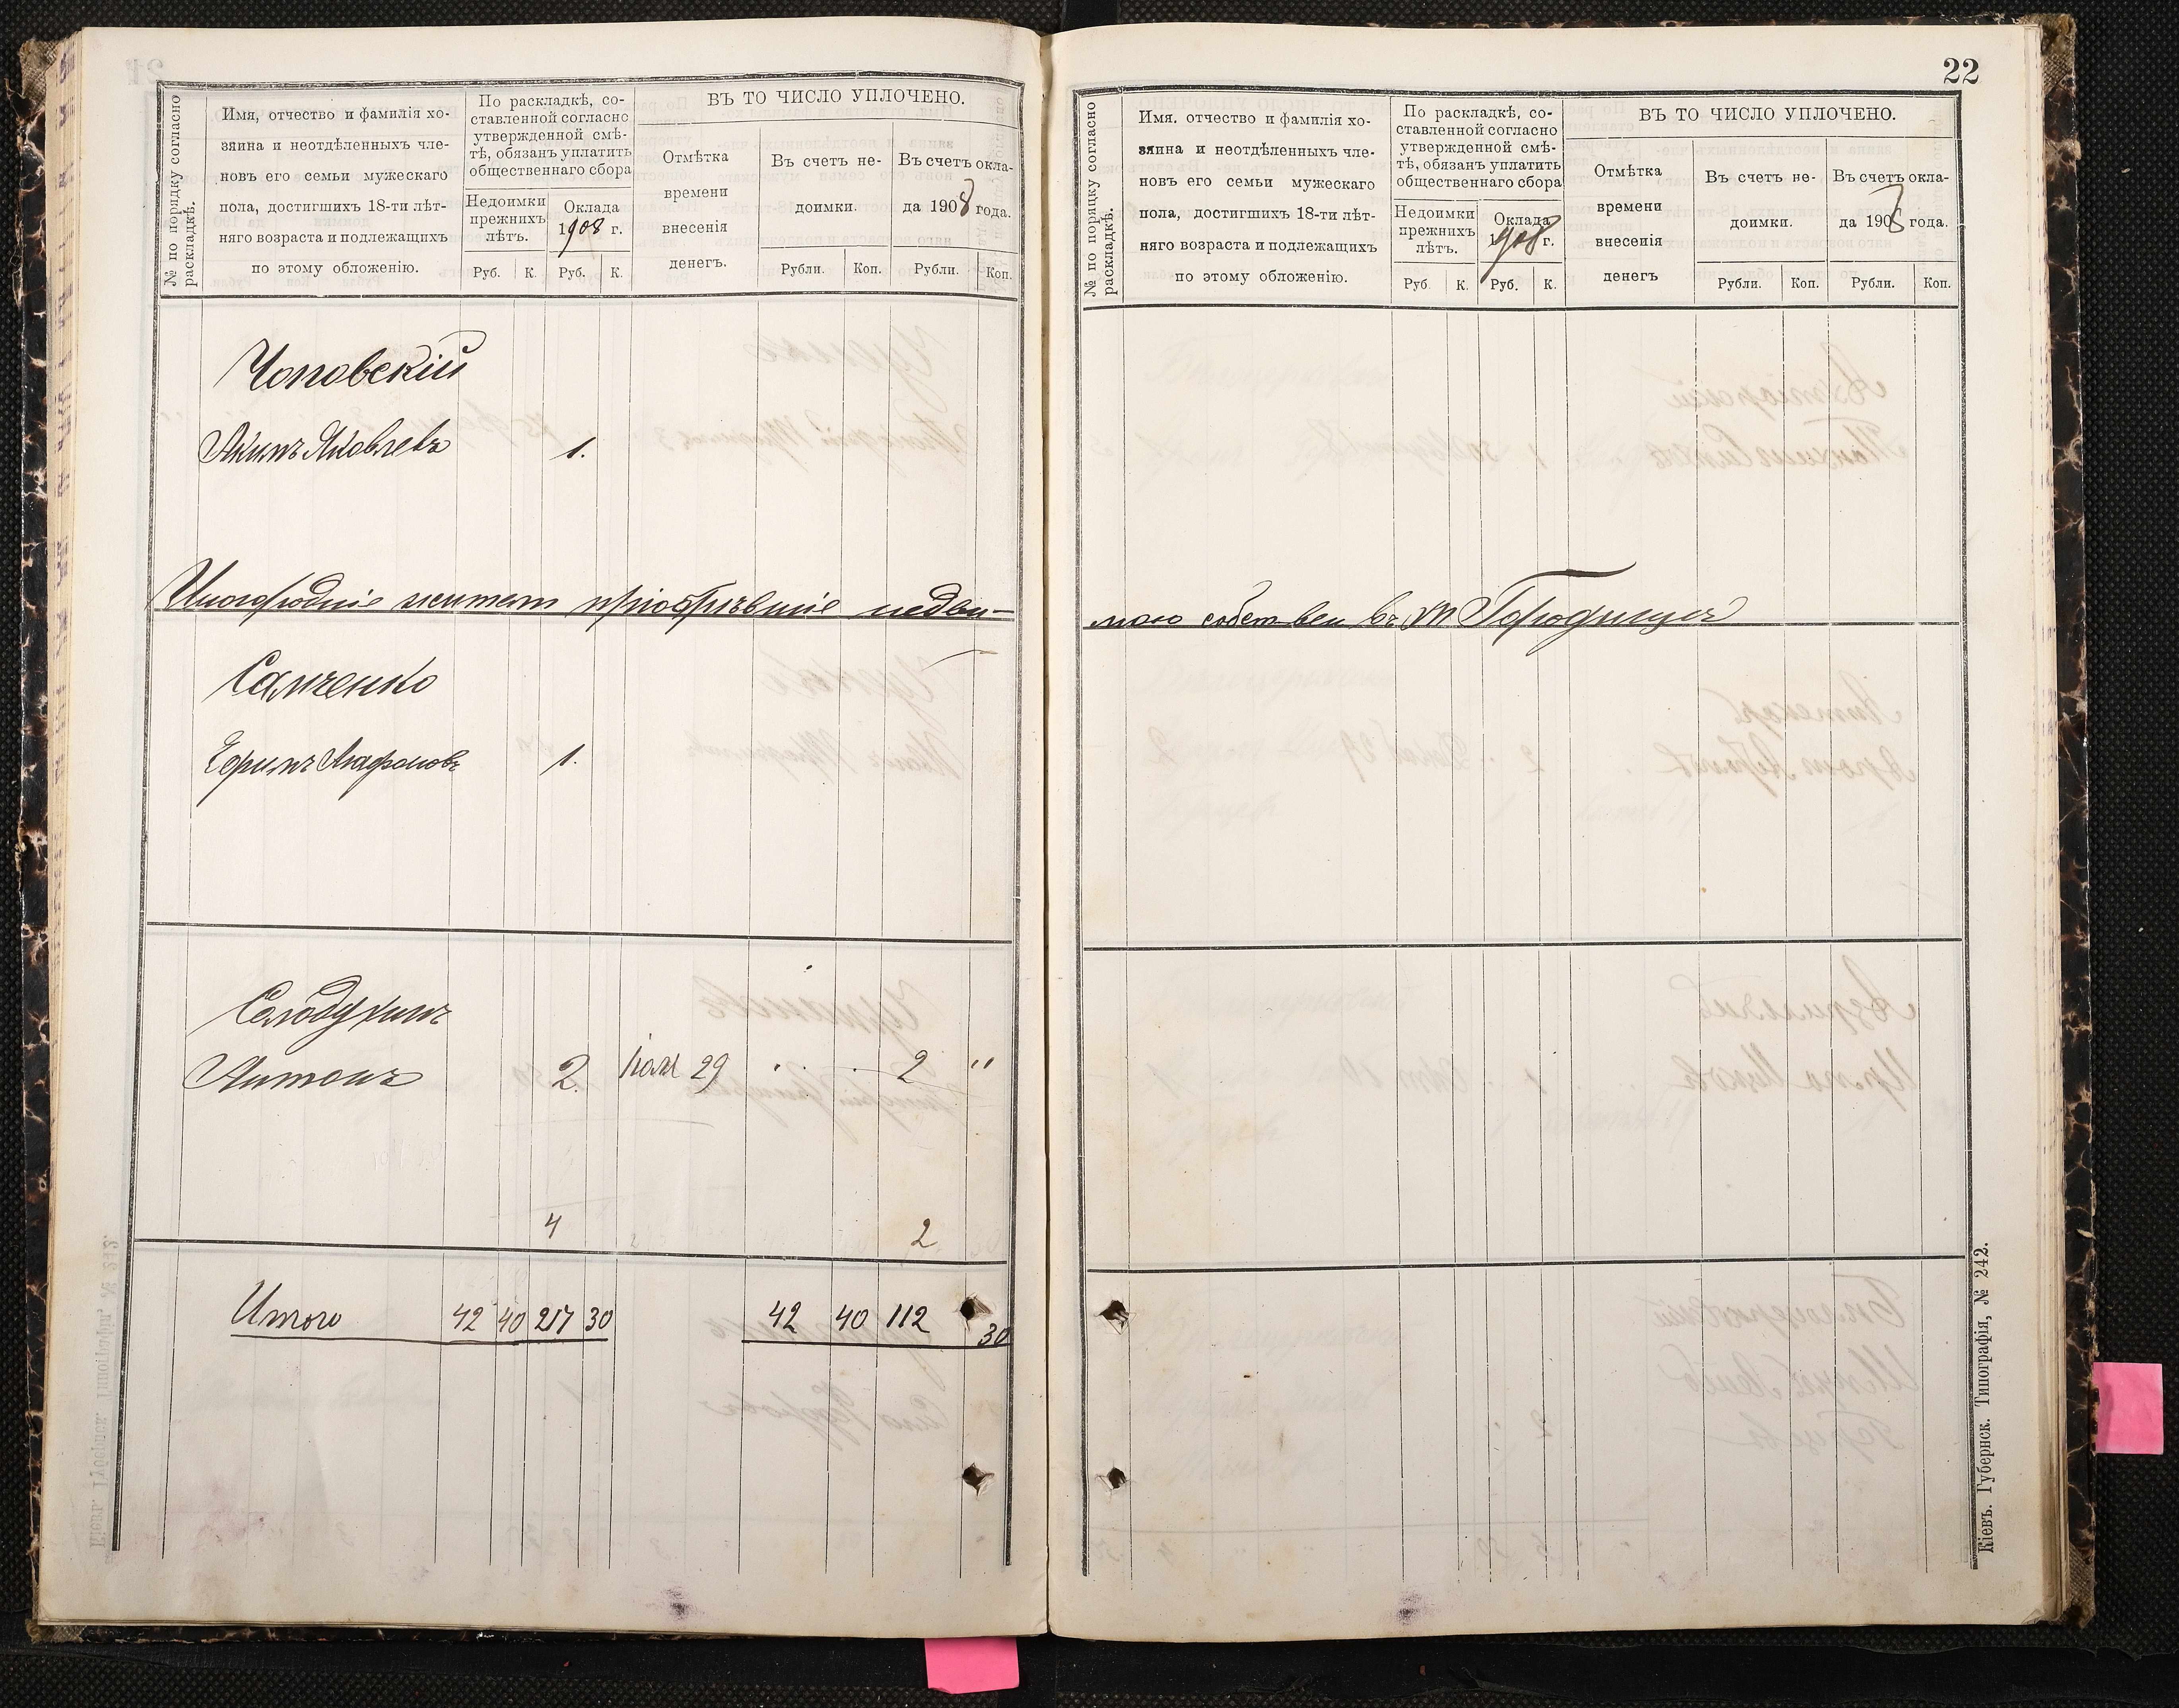 № по порядку согласно раскладкѣ.
Имя, отчество и фамилія хо-
зяина и неотдѣленныхъ чле-
новъ его семьи мужескаго
пола, достигшихъ 18-ти лѣт-
няго возраста и подлежащихъ
по этому обложенію.
По раскладкѣ, со-
ставленной согласно
утвержденной смѣ-
тѣ, обязанъ уплатить
общественнаго сбора
Недоимки
прежнихъ
лѣтъ.
Оклада
1908 г.
Руб. К. Руб. К.
ВЪ ТО ЧИСЛО УПЛОЧЕНО.
Отмѣтка
времени
внесенія
денегъ.
Въ счетъ не-
доимки.
Въ счетъ окла-
да 1908 года.
Рубли. Коп. Рубли. Коп.
Чоповскій
Акимъ Яковлевъ 1.
Иногородніе жители пріобрѣвшіе недви-
Самченко
Ефимъ Агафоновъ 1.
Солодухинъ
Антонъ 2. 29 2 "
4 2
Итого 42 40 217 30 42 40 112 30
22
№ по порядку согласно раскладкѣ.
Имя, отчество и фамилія хо-
зяина и неотдѣленныхъ чле-
новъ его семьи мужескаго
пола, достигшихъ 18-ти лѣт-
няго возраста и подлежащихъ
по этому обложенію.
По раскладкѣ, со-
ставленной согласно
утвержденной смѣ-
тѣ, обязанъ уплатить
общественнаго сбора
Недоимки
прежнихъ
лѣтъ.
Оклада
1908 г.
Руб. К. Руб. К.
ВЪ ТО ЧИСЛО УПЛОЧЕНО.
Отмѣтка
времени
внесенія
денегъ
Въ счетъ не-
доимки.
Въ счетъ окла-
да 1908 года.
Рубли. Коп. Рубли. Коп.
мою собствен въ м Городищѣ
Кіевъ. Губернск. Типографія, № 242.